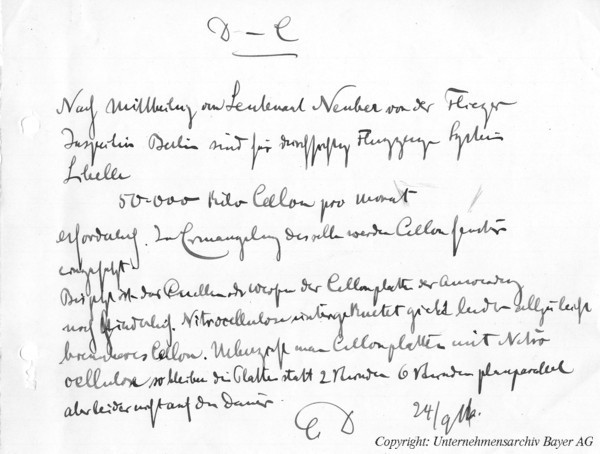 D – C
Nach Mittheilung von Leutenant Neuber von der Flieger
Inspektion Berlin sind für durchsichtige Flugzeuge System
Libelle
50.000 Kilo Cellon pro Monat
erforderlich. In Ermangelung desselben werden Cellonfenster
eingesetzt.
Bis jetzt ist das Quellen oder Werfen der Cellonplatte der Anwendung
noch hinderlich. Nitrocellulose untergeknetet giebt leider allzu leicht
brennbares Cellon. Ueberzieht man Cellonplatten mit Nitro
cellulose so bleiben die Platten statt 2 Stunden 6 Stunden planparallel
aber leider nicht auf die Dauer.
C D 24/9
Copyright: Unternehmensarchiv Bayer AG